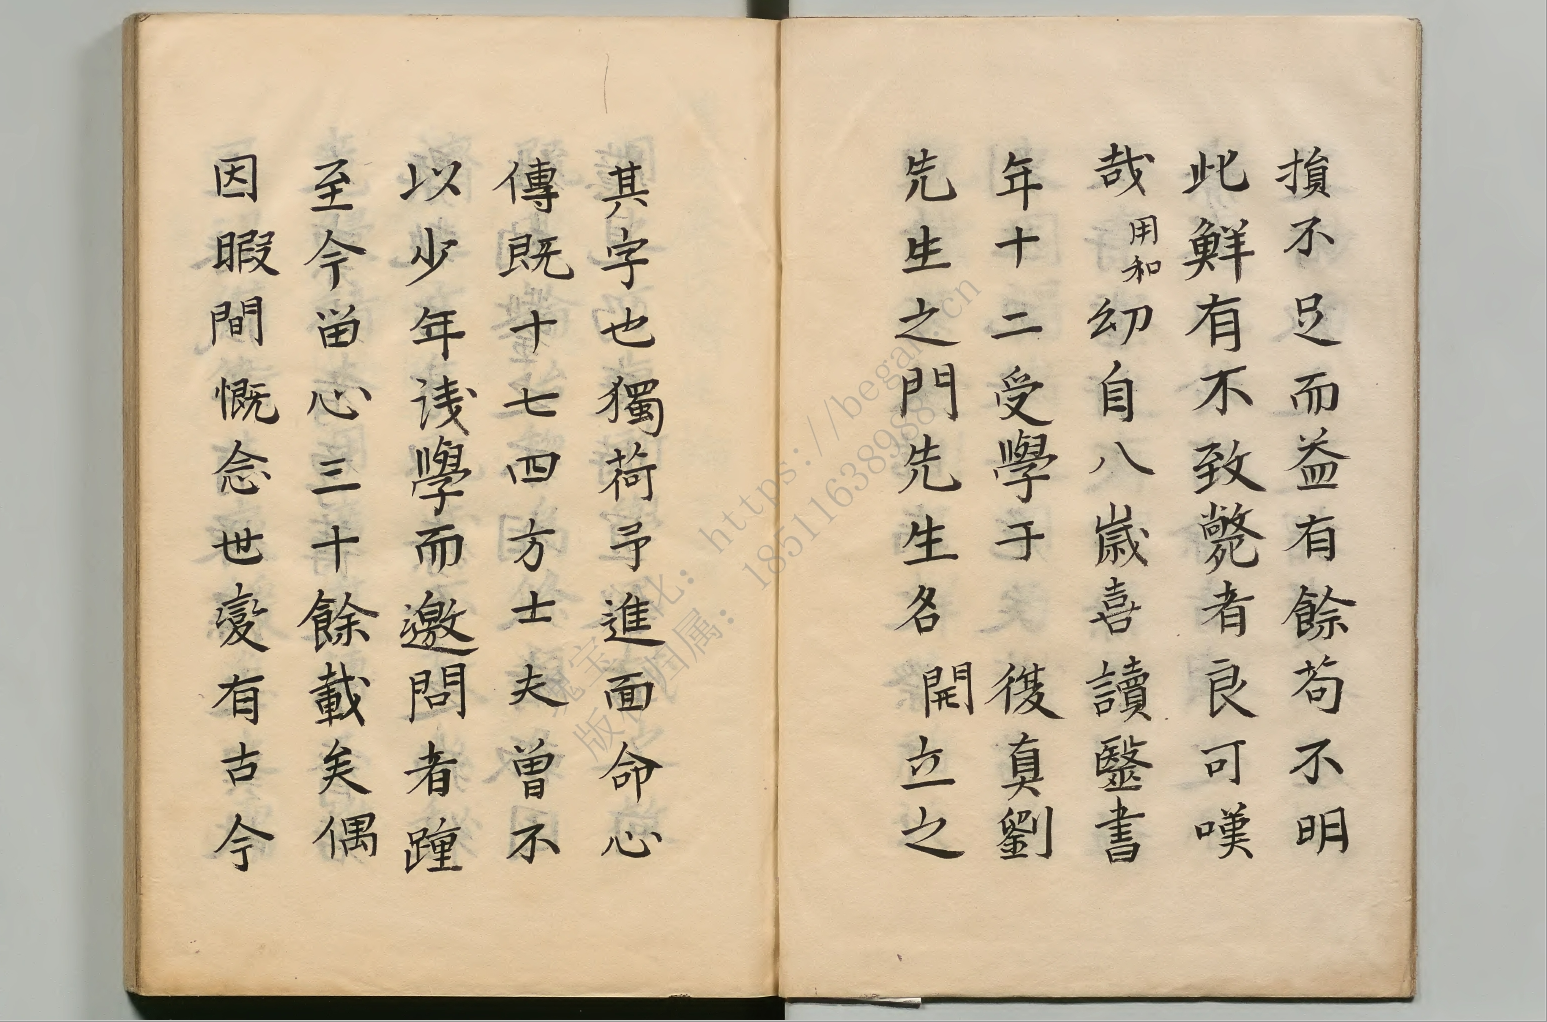 損不足而益有餘苟不明
此鮮有不致斃者良可嘆
哉用和幼自八歲喜讀毉書
年十二受學于復真劉
先生之門先生名開立之
其字也獨荷予進面命心
傳既十七四方士夫曾不
以少年淺學而邀問者踵
至今留心三十餘載矣偶
因暇間慨念世變有古今
版权归属：18511638988